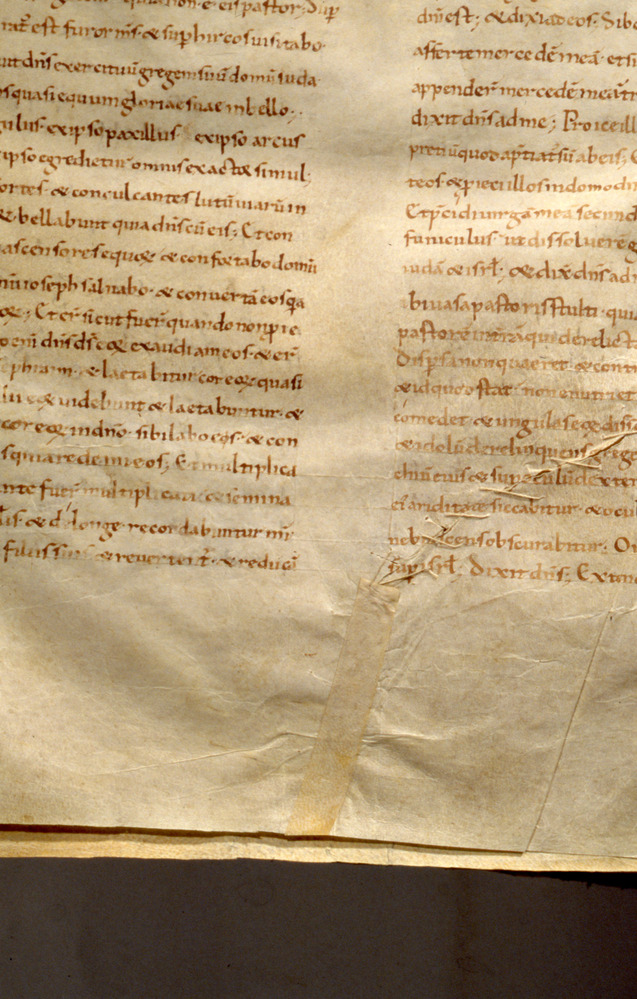 quia non ÷ eis pastor; Sup
irat̄ est furor m̄s & sup hircos uisitabo
uit dn̄s exercituū gregem suū domū iuda
quasi equum gloriae suae in bello;
gulus ex ipso paxillus ex ipso arcus
ipso egredietur omnis exactor simul;
fortes & conculcantes lutū uiarū in
& bellabunt quia dn̄s cū eis; Et con
ascensores equoꝝ & confortabo domū
ioseph saluabo & conuertā eos q̄a
Et er̄ sicut fuer̄ quando non ꝓie
enī dn̄s ds̄ eoꝝ exaudiam eos & er̄
ephraim & laetabitur cor eoꝝ quasi
uidebunt & laetabuntur &
cor eoꝝ in dn̄o sibilabo eos & con
quia redemi eos; Et multiplica
ante fuer̄ multiplicati & semina
& de longe recordabuntur mī
filiis suis & reuertent̄ & reducā
dn̄i est; & dixi ad eos Si bo
afferte mercedē meā et si
appender̄ mercedē meā tr
dixit dn̄s ad me; Proice ill
pretiū quo ap̄tiat sū ab eis; E
teos & ꝓieci illos in domo dn̄
Et p̄cidi uirgā mea secund
funiculus ut dissoluerē g
iudā & isrl̄; & dix̄ dn̄s ad
bi uasa pastoris stulti quia
pastorē in terra qui derelicta
dispersū non quaeret & contri
& id quod stat non enutriet
comedet & ungulas eoꝝ diss
& idolū derelinquens grege
chiū eius & sup oculū dexter
ei' ariditate siccabitur & ocul
nebrescens obscurabitur; On
sup isrl̄. Dixit dn̄s; Exten